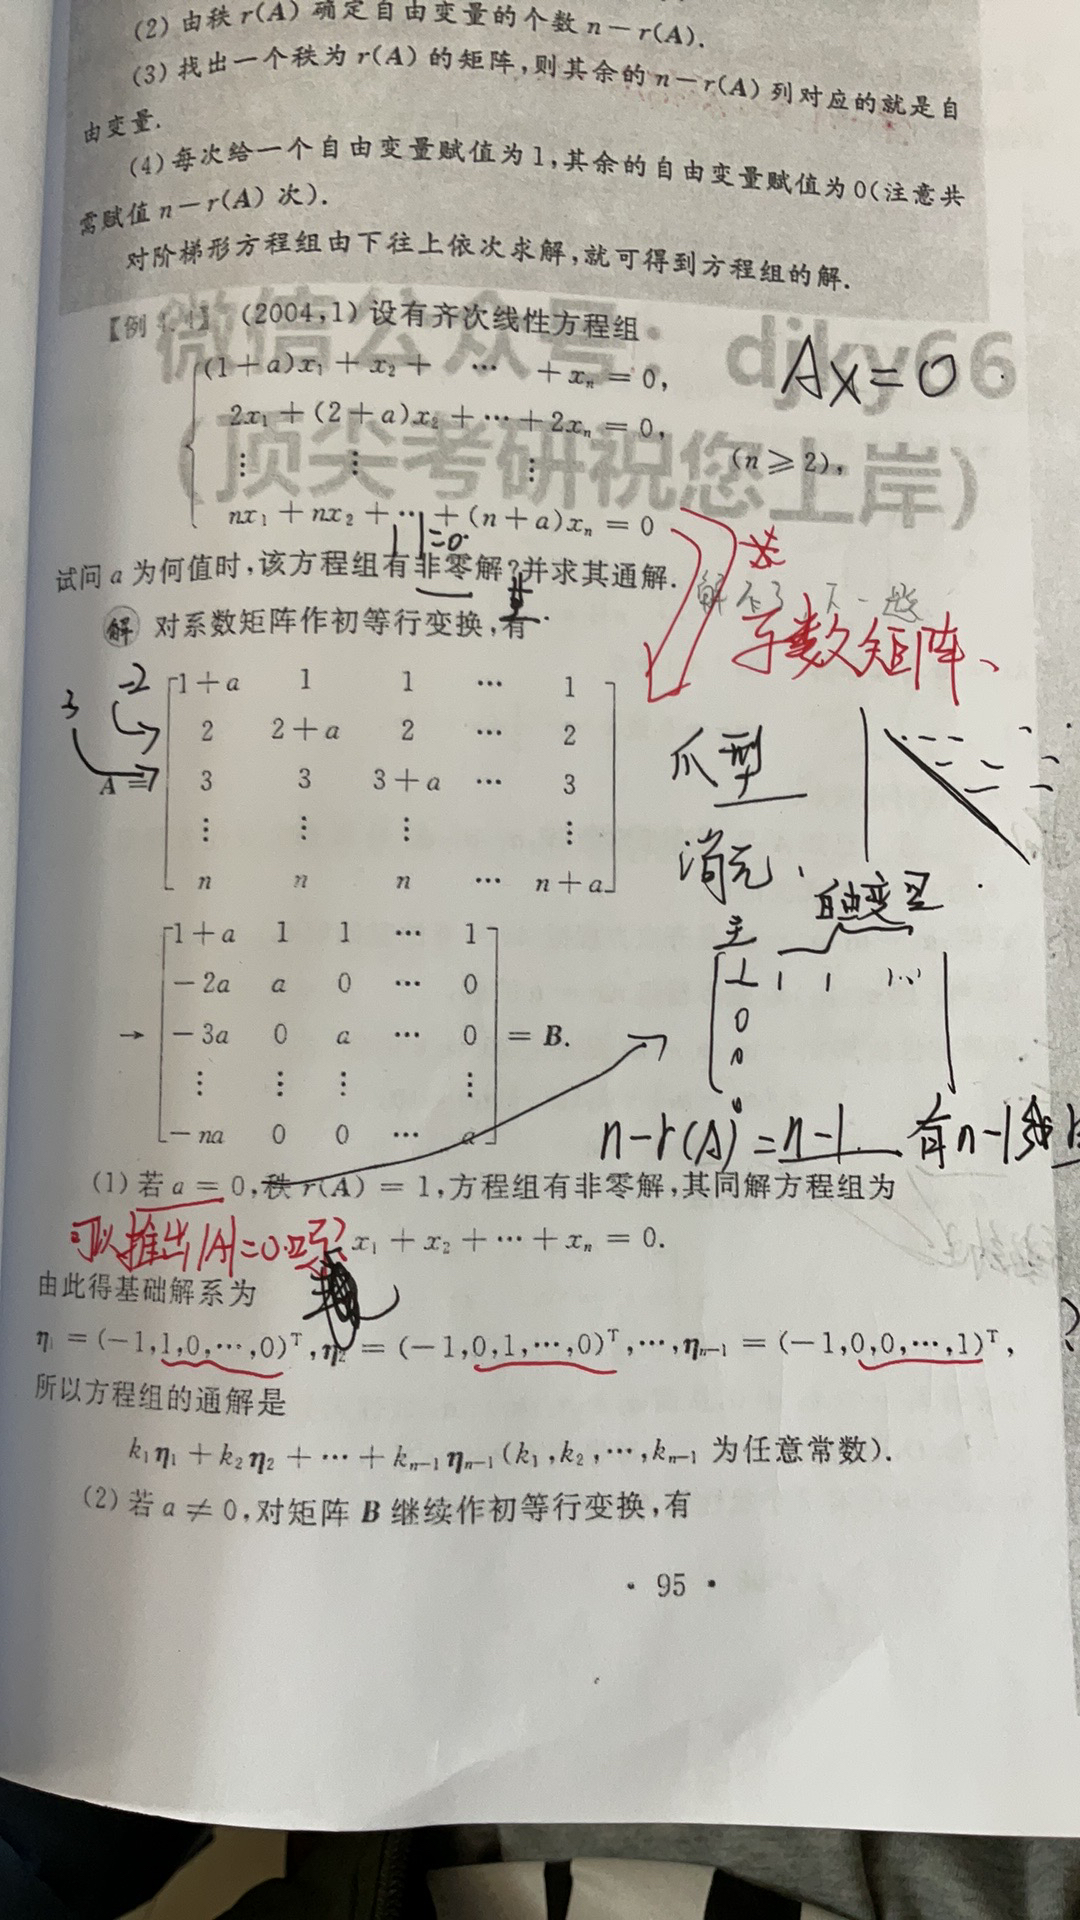 (2) 由秩 r(A) 确定自由变量的个数 n－r(A).
(3) 找出一个秩为 r(A) 的矩阵,则其余的 n－r(A) 列对应的就是自
由变量.
(4) 每次给一个自由变量赋值为 1,其余的自由变量赋值为 0(注意共
需赋值 n－r(A) 次).
对阶梯形方程组由下往上依次求解,就可得到方程组的解.
微信公众号: djky66
(顶尖考研祝您上岸)
【例 (2004,1) 设有齐次线性方程组
(1+a)x₁ + x₂ + ⋯ + xₙ = 0,
Ax=0
2x₁ + (2+a)x₂ + ⋯ + 2xₙ = 0,
⋮ ⋮ ⋮ (n ≥ 2),
nx₁ + nx₂ + ⋯ + (n+a)xₙ = 0
| |=0
试问 a 为何值时,该方程组有非零解?并求其通解.
解 对系数矩阵作初等行变换,有
数矩阵、
-2
3
A = [1+a 1 1 ⋯ 1
2 2+a 2 ⋯ 2
3 3 3+a ⋯ 3
⋮ ⋮ ⋮ ⋮
n n n ⋯ n+a]
爪型
消元、
自由变量
主
1 1 1 ⋯
0
0
0
→ [1+a 1 1 ⋯ 1
−2a a 0 ⋯ 0
−3a 0 a ⋯ 0
⋮ ⋮ ⋮ ⋮
−na 0 0 ⋯ a] = B.
n-r(A)=n-1 有n-1
(1) 若 a = 0,秩 r(A) = 1,方程组有非零解,其同解方程组为
可以推出|A|=0.
x₁ + x₂ + ⋯ + xₙ = 0.
由此得基础解系为
η₁ = (−1,1,0,⋯,0)ᵀ,η₂ = (−1,0,1,⋯,0)ᵀ,⋯,ηₙ₋₁ = (−1,0,0,⋯,1)ᵀ,
所以方程组的通解是
k₁η₁ + k₂η₂ + ⋯ + kₙ₋₁ηₙ₋₁ (k₁,k₂,⋯,kₙ₋₁ 为任意常数).
(2) 若 a ≠ 0,对矩阵 B 继续作初等行变换,有
· 95 ·